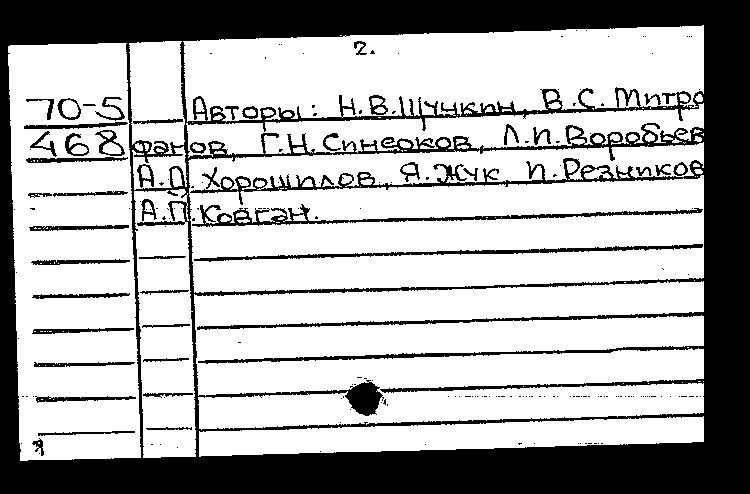 2.
70-5 Авторы: Н.В.Щучкин, В.С.Митро
468 фанов, Г.Н.Синеоков, Л.П.Воробьев
А.П. Хорошилов, Я.Жук, И.Резников
А.П. Ковган.